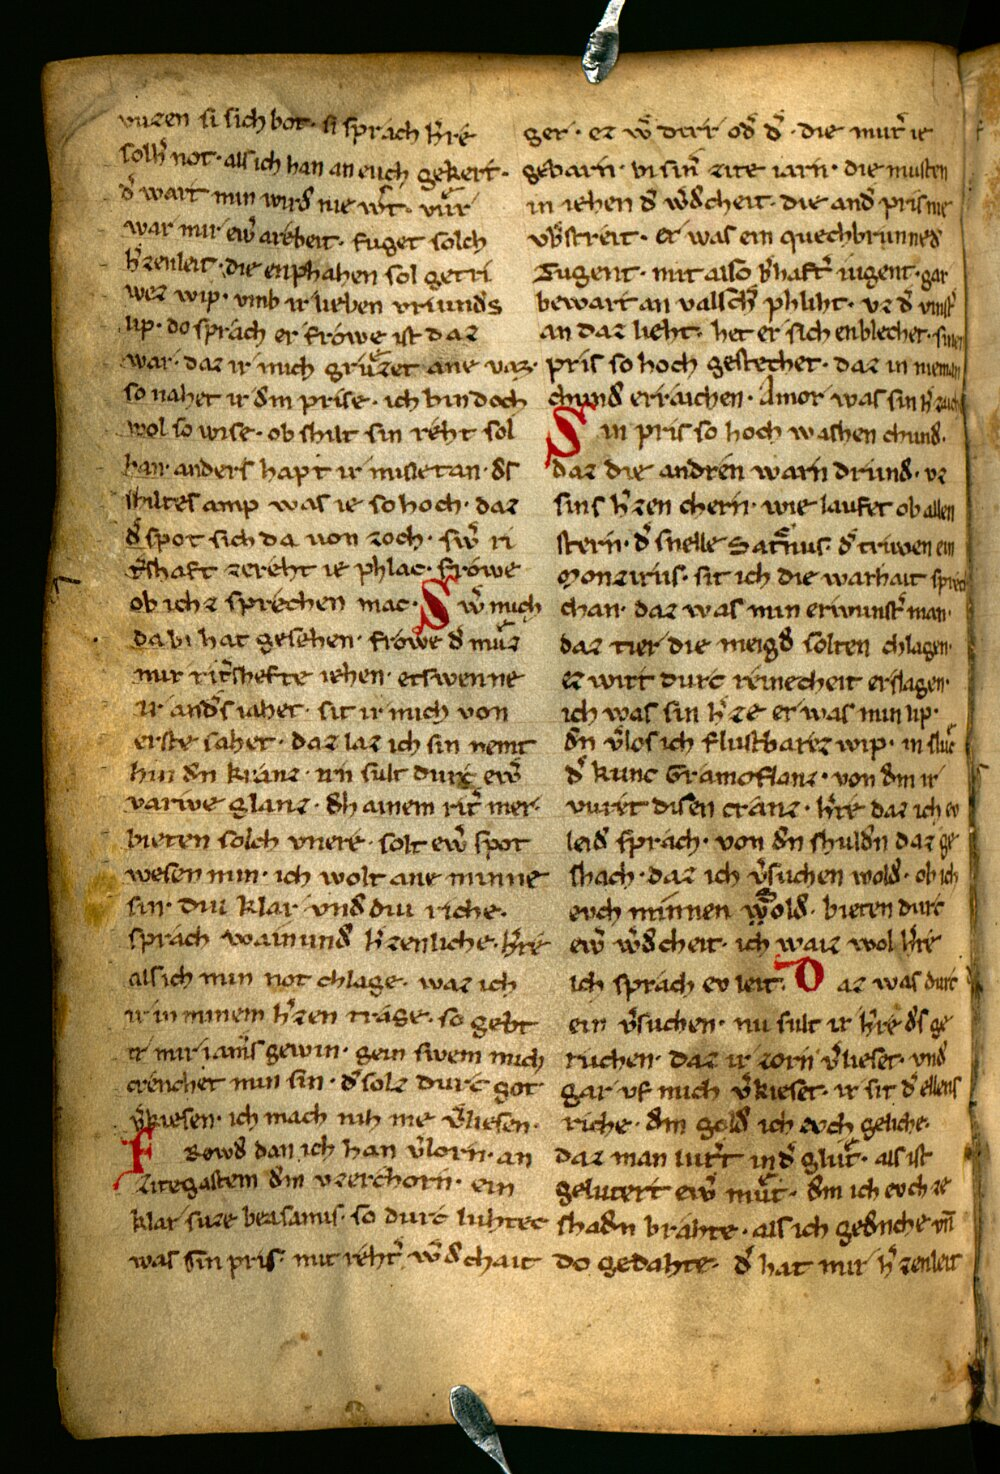 vuzen si sich bot· si sprach h̾re
solh̾ not· als ich han an euch gekert·
d̾ wart min wird nie w̾t· vuͤr
war mir ew̾ arebeit· fuget solch
h̾zenleit· die enphahen sol getri
wez wip· vmb ir lieben vriunds
lip· do sprach er frowe ist daz
war· daz ir mich gruͤzet ane vaz·
so nahet ir dem prise· ich bin doch
wol so wise· ob shilt sin reht sol
han· anders hapt ir misetan· ds
shiltes amp was ie so hoch· daz
d̾ spot sich da von zoch· sw̾ ri
t̾shaft zereht ie phlac· frowe
ob ichz sprechen mac· S w̾ mich
da bi hat gesehen· frowe d̾ muͤz
mir rit̾shefte iehen· etswenne
ir and̾s iahet· sit ir mich von
erste sahet· daz laz ich sin nemt
hin dn kranz· nin sult durc ew̾
varwe glanz· dhainem rit̾ mer·
bieten solch vnere· solt ew̾ spot
wesen min· ich wolt ane minne
sin· diu klar vnd diu riche·
sprach wainund h̾zenliche· h̾re
als ich min not chlage· waz ich
ir in minem h̾zen trage· so gebt
ir mir iam̾s gewin· gein swem mich
crenchet min sin· d̾ solz durc got
v̾kiesen· ich mach nih me v̾liesen·
F Rowd dan ich han v̾lorn· an
Zitegastem dem vzerchorn· ein
klar suze beasamis· so durc luhtec
was sin pris· mit reht̾ w̾dchait
ger· ez w̾ dirr od̾ d̾· die mut̾ ie
gebarn· bi sin̾ zite iarn· die musten
in iehen d̾ w̾dcheit· die and̾ pris nie
vb̾streit· er was ein quechbrunned
Tugent· mit also b̾haft̾ iugent· gar
bewart an valsch̾ phliht· vz d̾ vinst̾
an daz lieht· het er sich enblechet·
pris so hoch gestechet· daz in nieman
chund erraichen· Amor was sin h̾
S in pris so hoch washen chund·
daz die andren warn drund· vz
sins h̾zen chern· wie laufet ob allen
stern· d̾ snelle Sat̾nius· d̾ triwen ein
Monzirus· sit ich die warhait sprech
chan· daz was min eriwunst̾ man·
daz tier die meigd solten chlagen·
ez wirt durc reinecheit erslagen·
ich was sin h̾ze er was min lip·
dn v̾los ich flustbarez wip· in sluͤc
d̾ kunc Gramoflanz· von dem ir
vuret disen cranz· h̾re daz ich ev
leid sprach· von dn shuldn daz ge
shach· daz ich v̾suchen wold· ob ich
evch minnen wold· bieten durc
ew̾ w̾dcheit· ich waiz wol h̾re
ich sprach ev leit· D az was durc
ein v̾suchen· nu sult ir h̾re ds ge
ruchen· daz ir zorn v̾lieset· vnd
gar vf mich v̾kieset· ir sit d̾ ellens
riche· dem gold ich evch geliche·
daz man lut̾t in d̾ gluͤt· als ist
gelutert ew̾ muͤt· dem ich evch ze
shadn brahte· als ich gednche vn̄
do gedahte· d̾ hat mir h̾zenleit